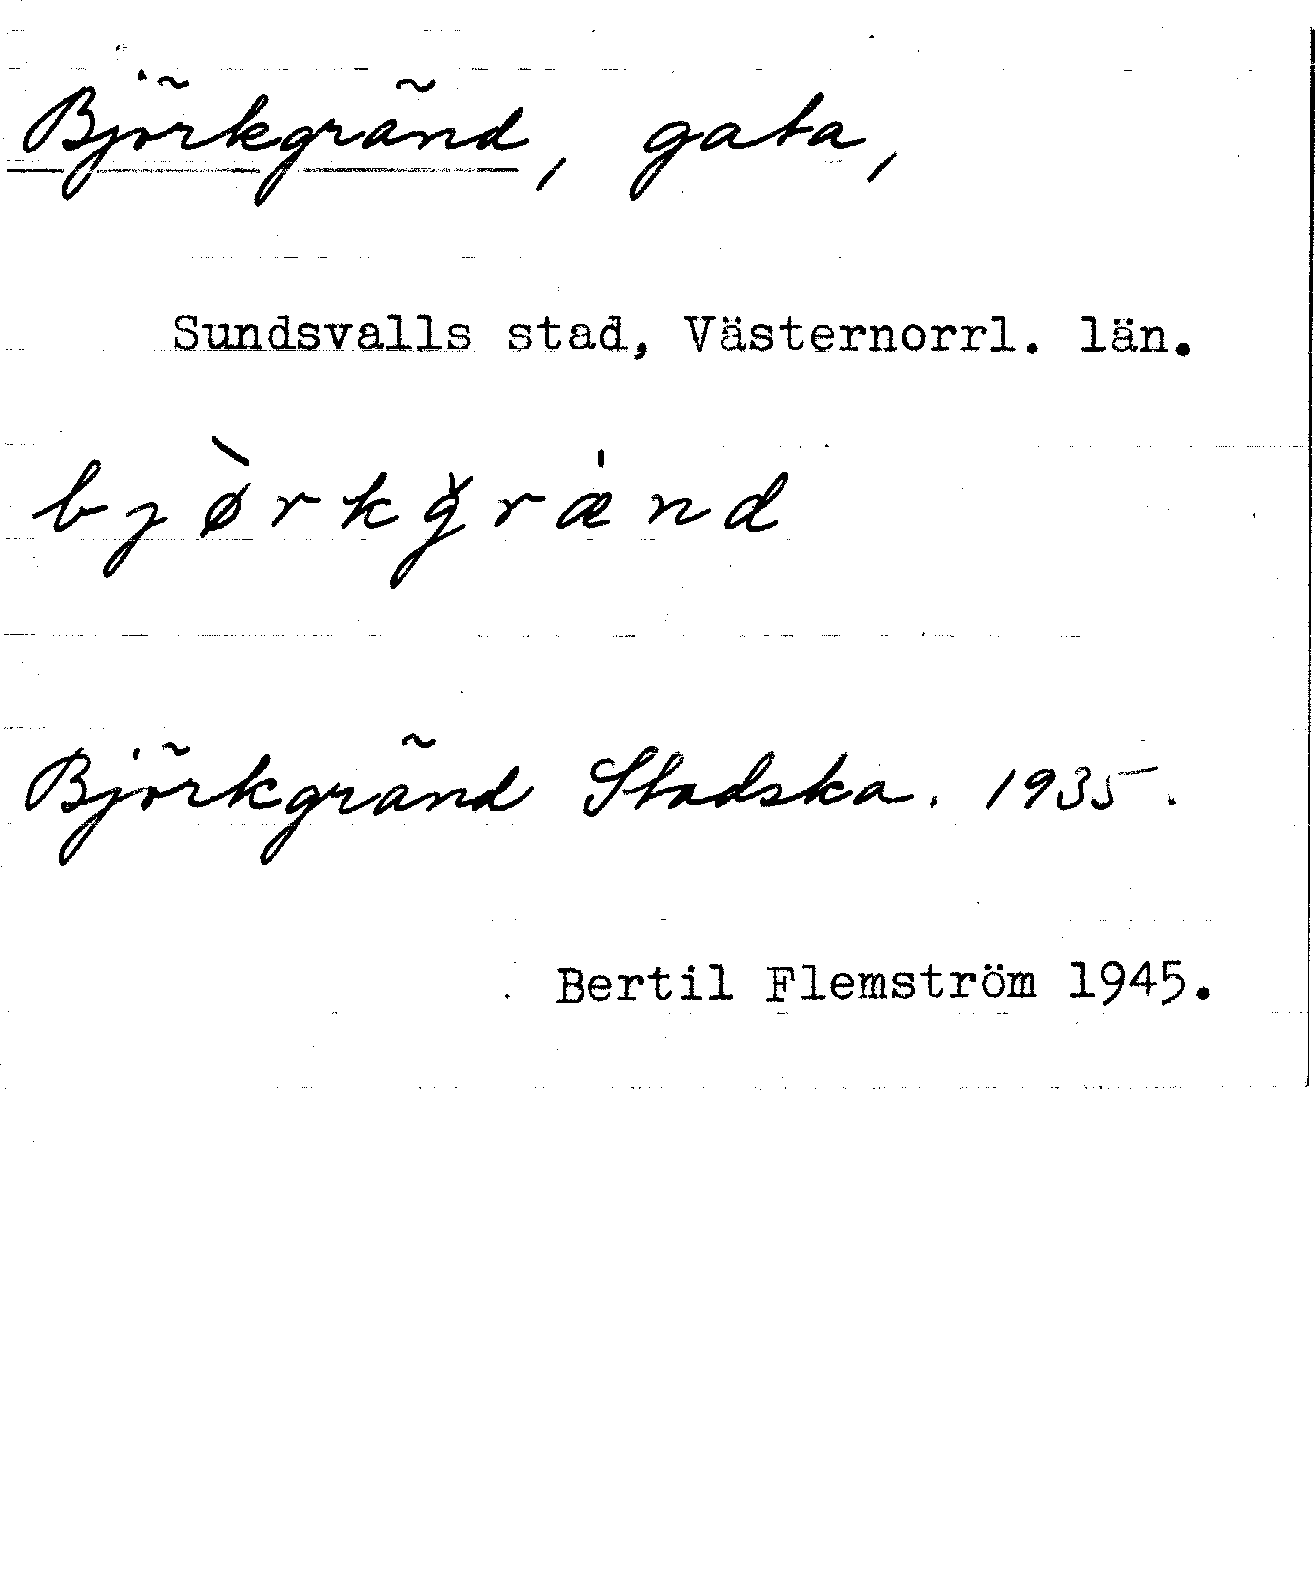 Björkgränd, gata,
Sundsvalls stad, Västernorrl. län.
bjø̀rkğræ̍nd
Björkgränd Stadska. 1935.
Bertil Flemström 1945.